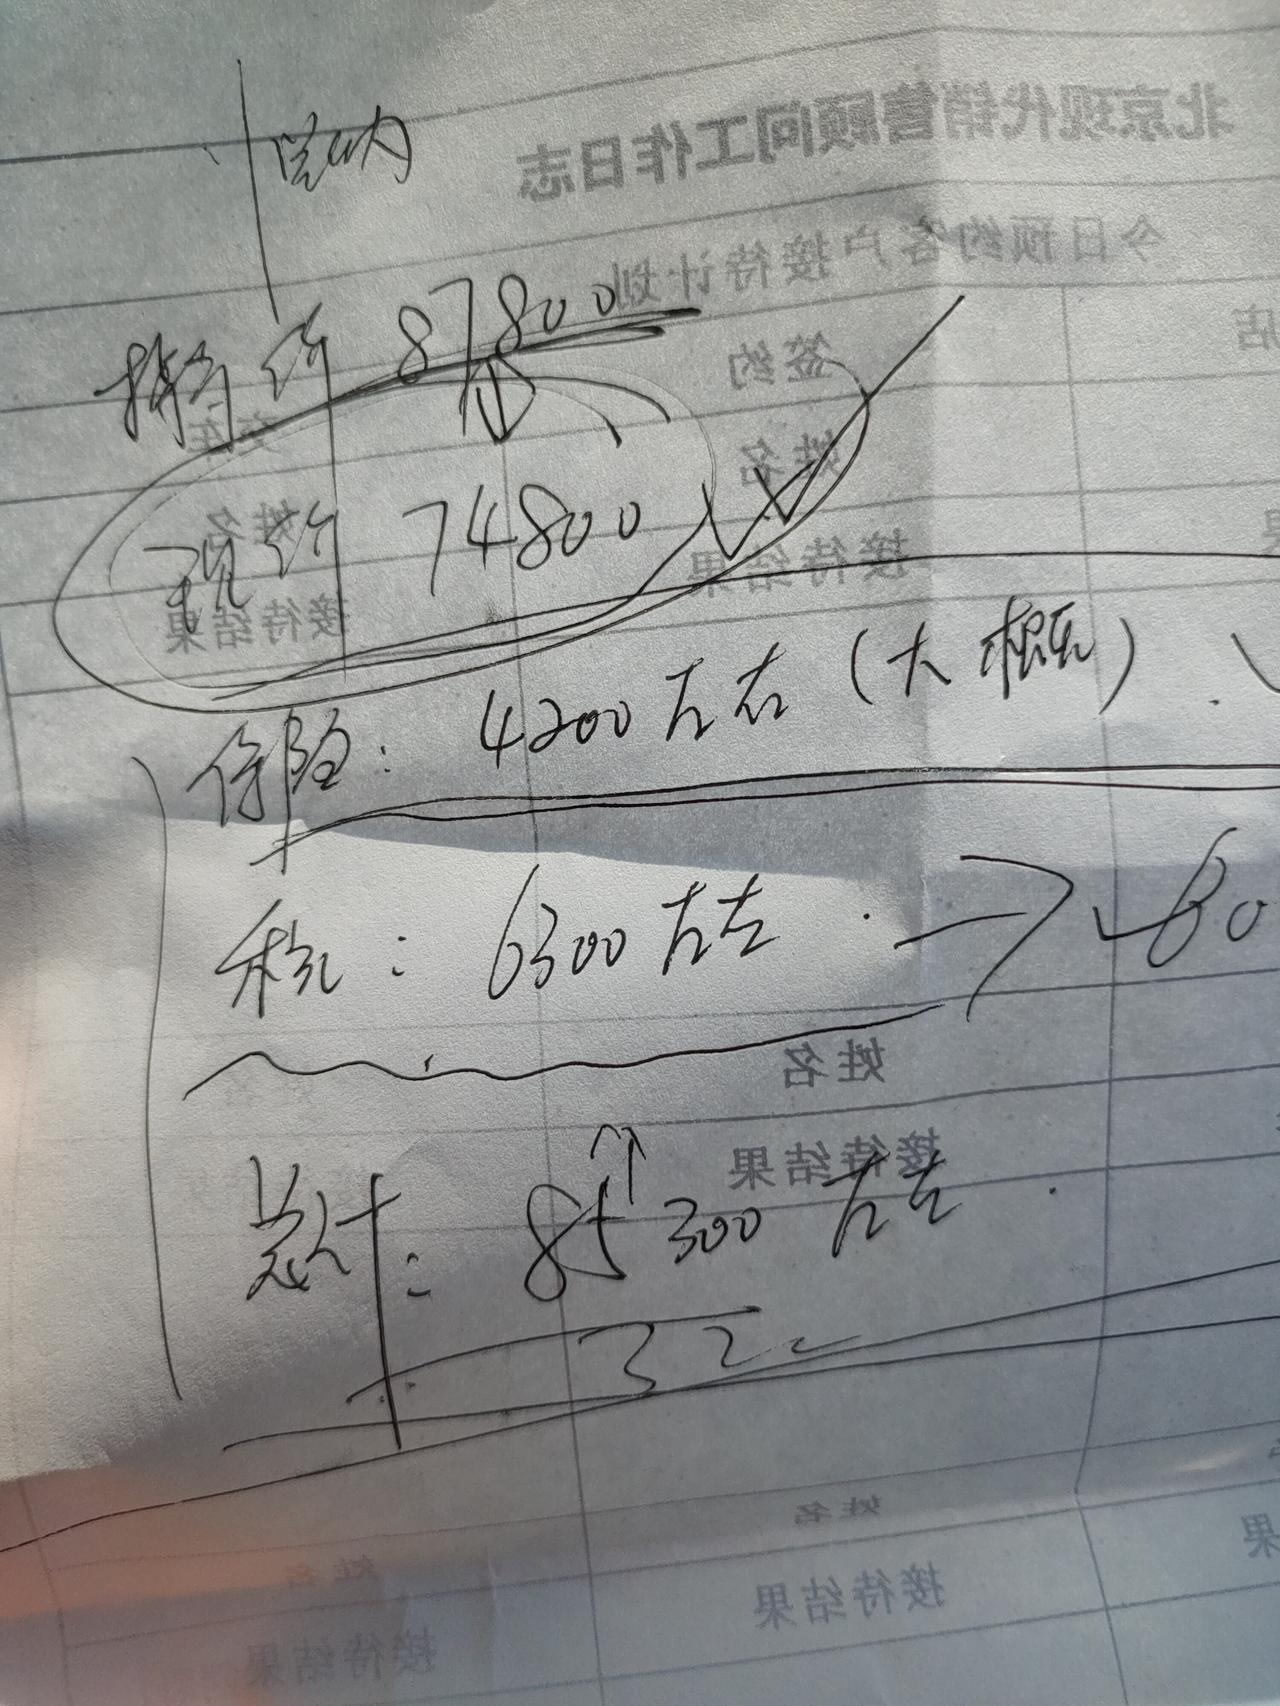 北京现代销售顾问工作日志
今日预约客户接待计划
签约
指导价 87800
交车
姓名
姓名
现价 74800
接待结果
接待结果
保险: 4200左右(大概).
税: 6300左右. 60
姓名
接待结果
总计: 85300左右.
姓名
姓名
接待结果
接待结果
果